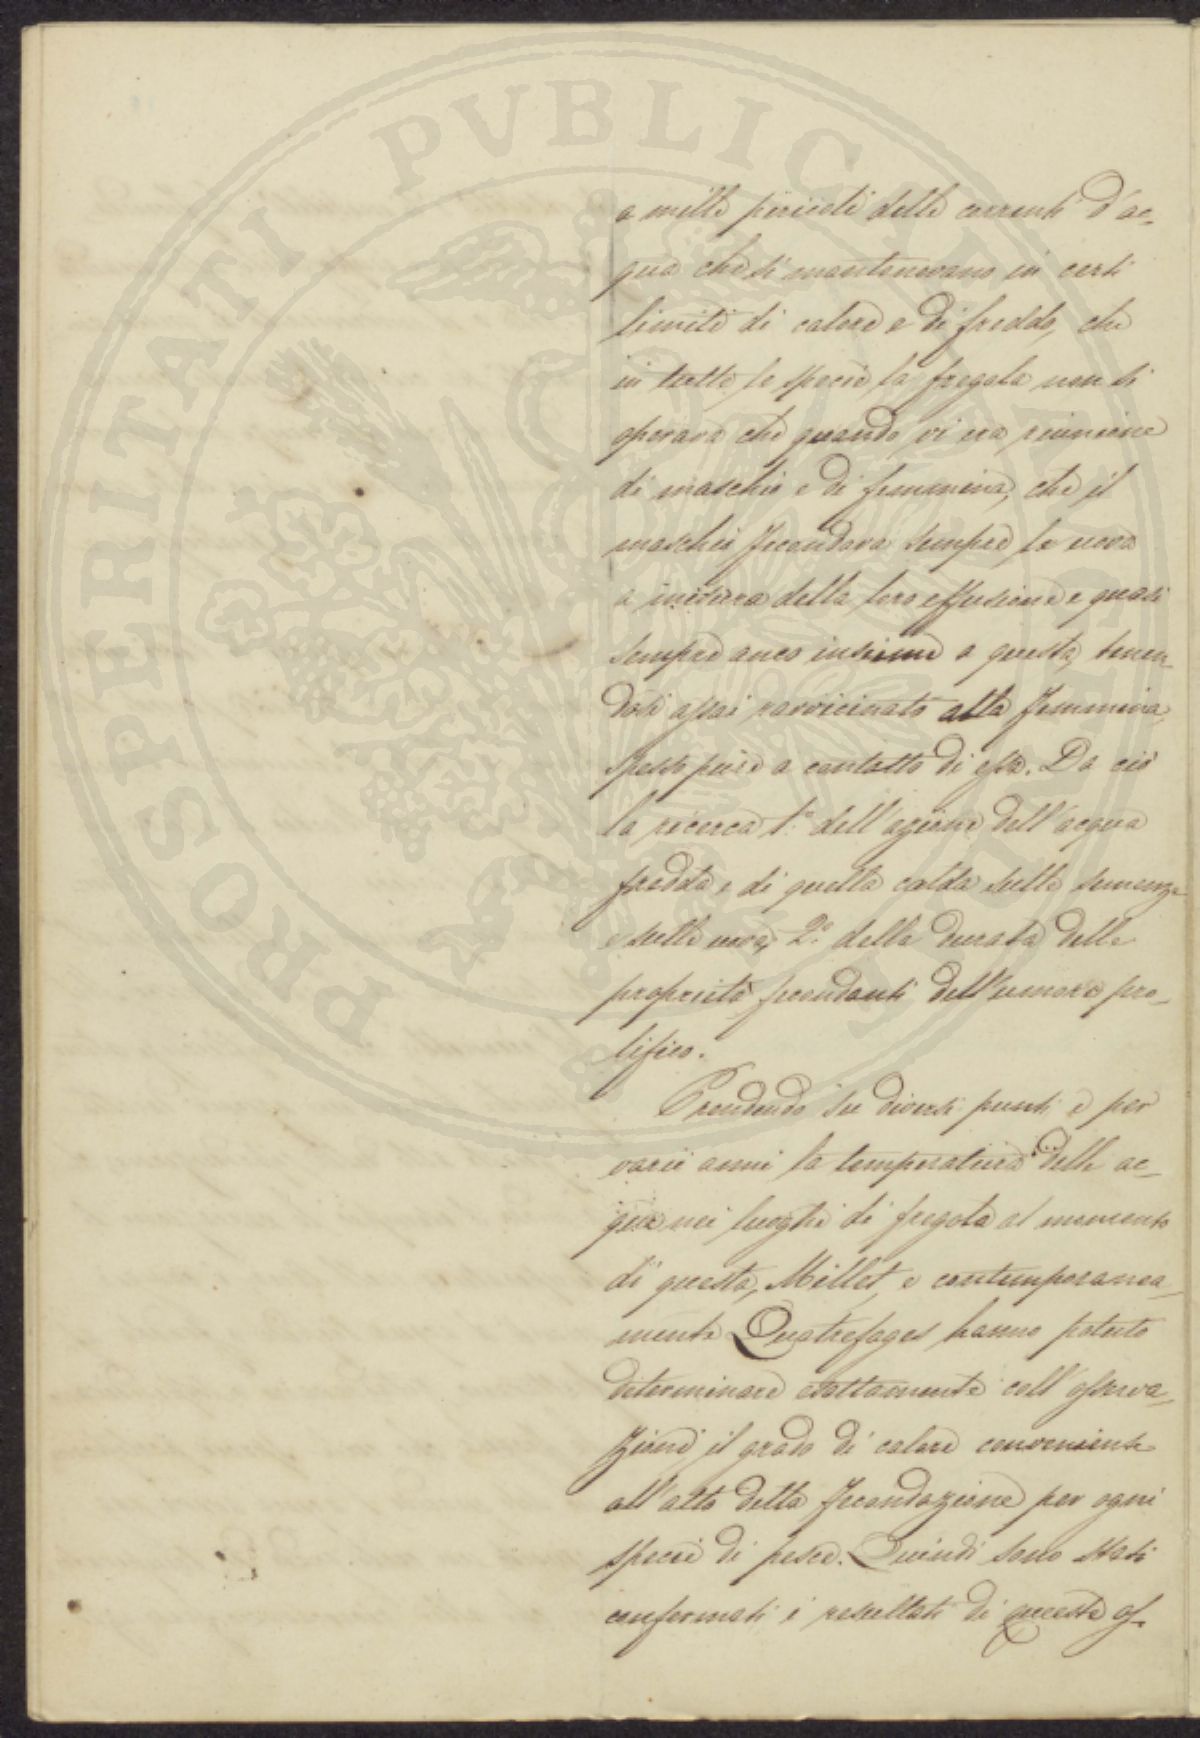 PROSPERITATI PVBLICAE AVGENDAE
a mille pericoli delle correnti d'ac-
qua che si mantenevano in certi
limiti di calore e di freddo, che
in tutte le specie la fregola non si
operava che quando vi era riunione
di maschio e di femmina, che il
maschio fecondava sempre le uova
a misura della loro effusione e quasi
sempre anco insieme a questa, tenen-
dosi assai ravvicinato alla femmina,
spesso pure a contatto di essa. Da ciò
la ricerca 1.° dell'azione dell'acqua
fredda e di quella calda sulle semenze
e sulle uova, 2.° della durata delle
proprietà fecondanti dell'umore pro-
lifico.
Prendendo su diversi punti e per
varii anni la temperatura delle ac-
que nei luoghi di fregola al momento
di questa, Millet, e contemporanea-
mente Quatrefages hanno potuto
determinare esattamente coll'osserva-
zione il grado di calore conveniente
all'atto della fecondazione per ogni
specie di pesce. Quindi sono stati
confermati i resultati di queste os-